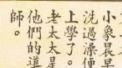 小象晨早
洗過澡便
上學了。
老太太是
他們的導
師。